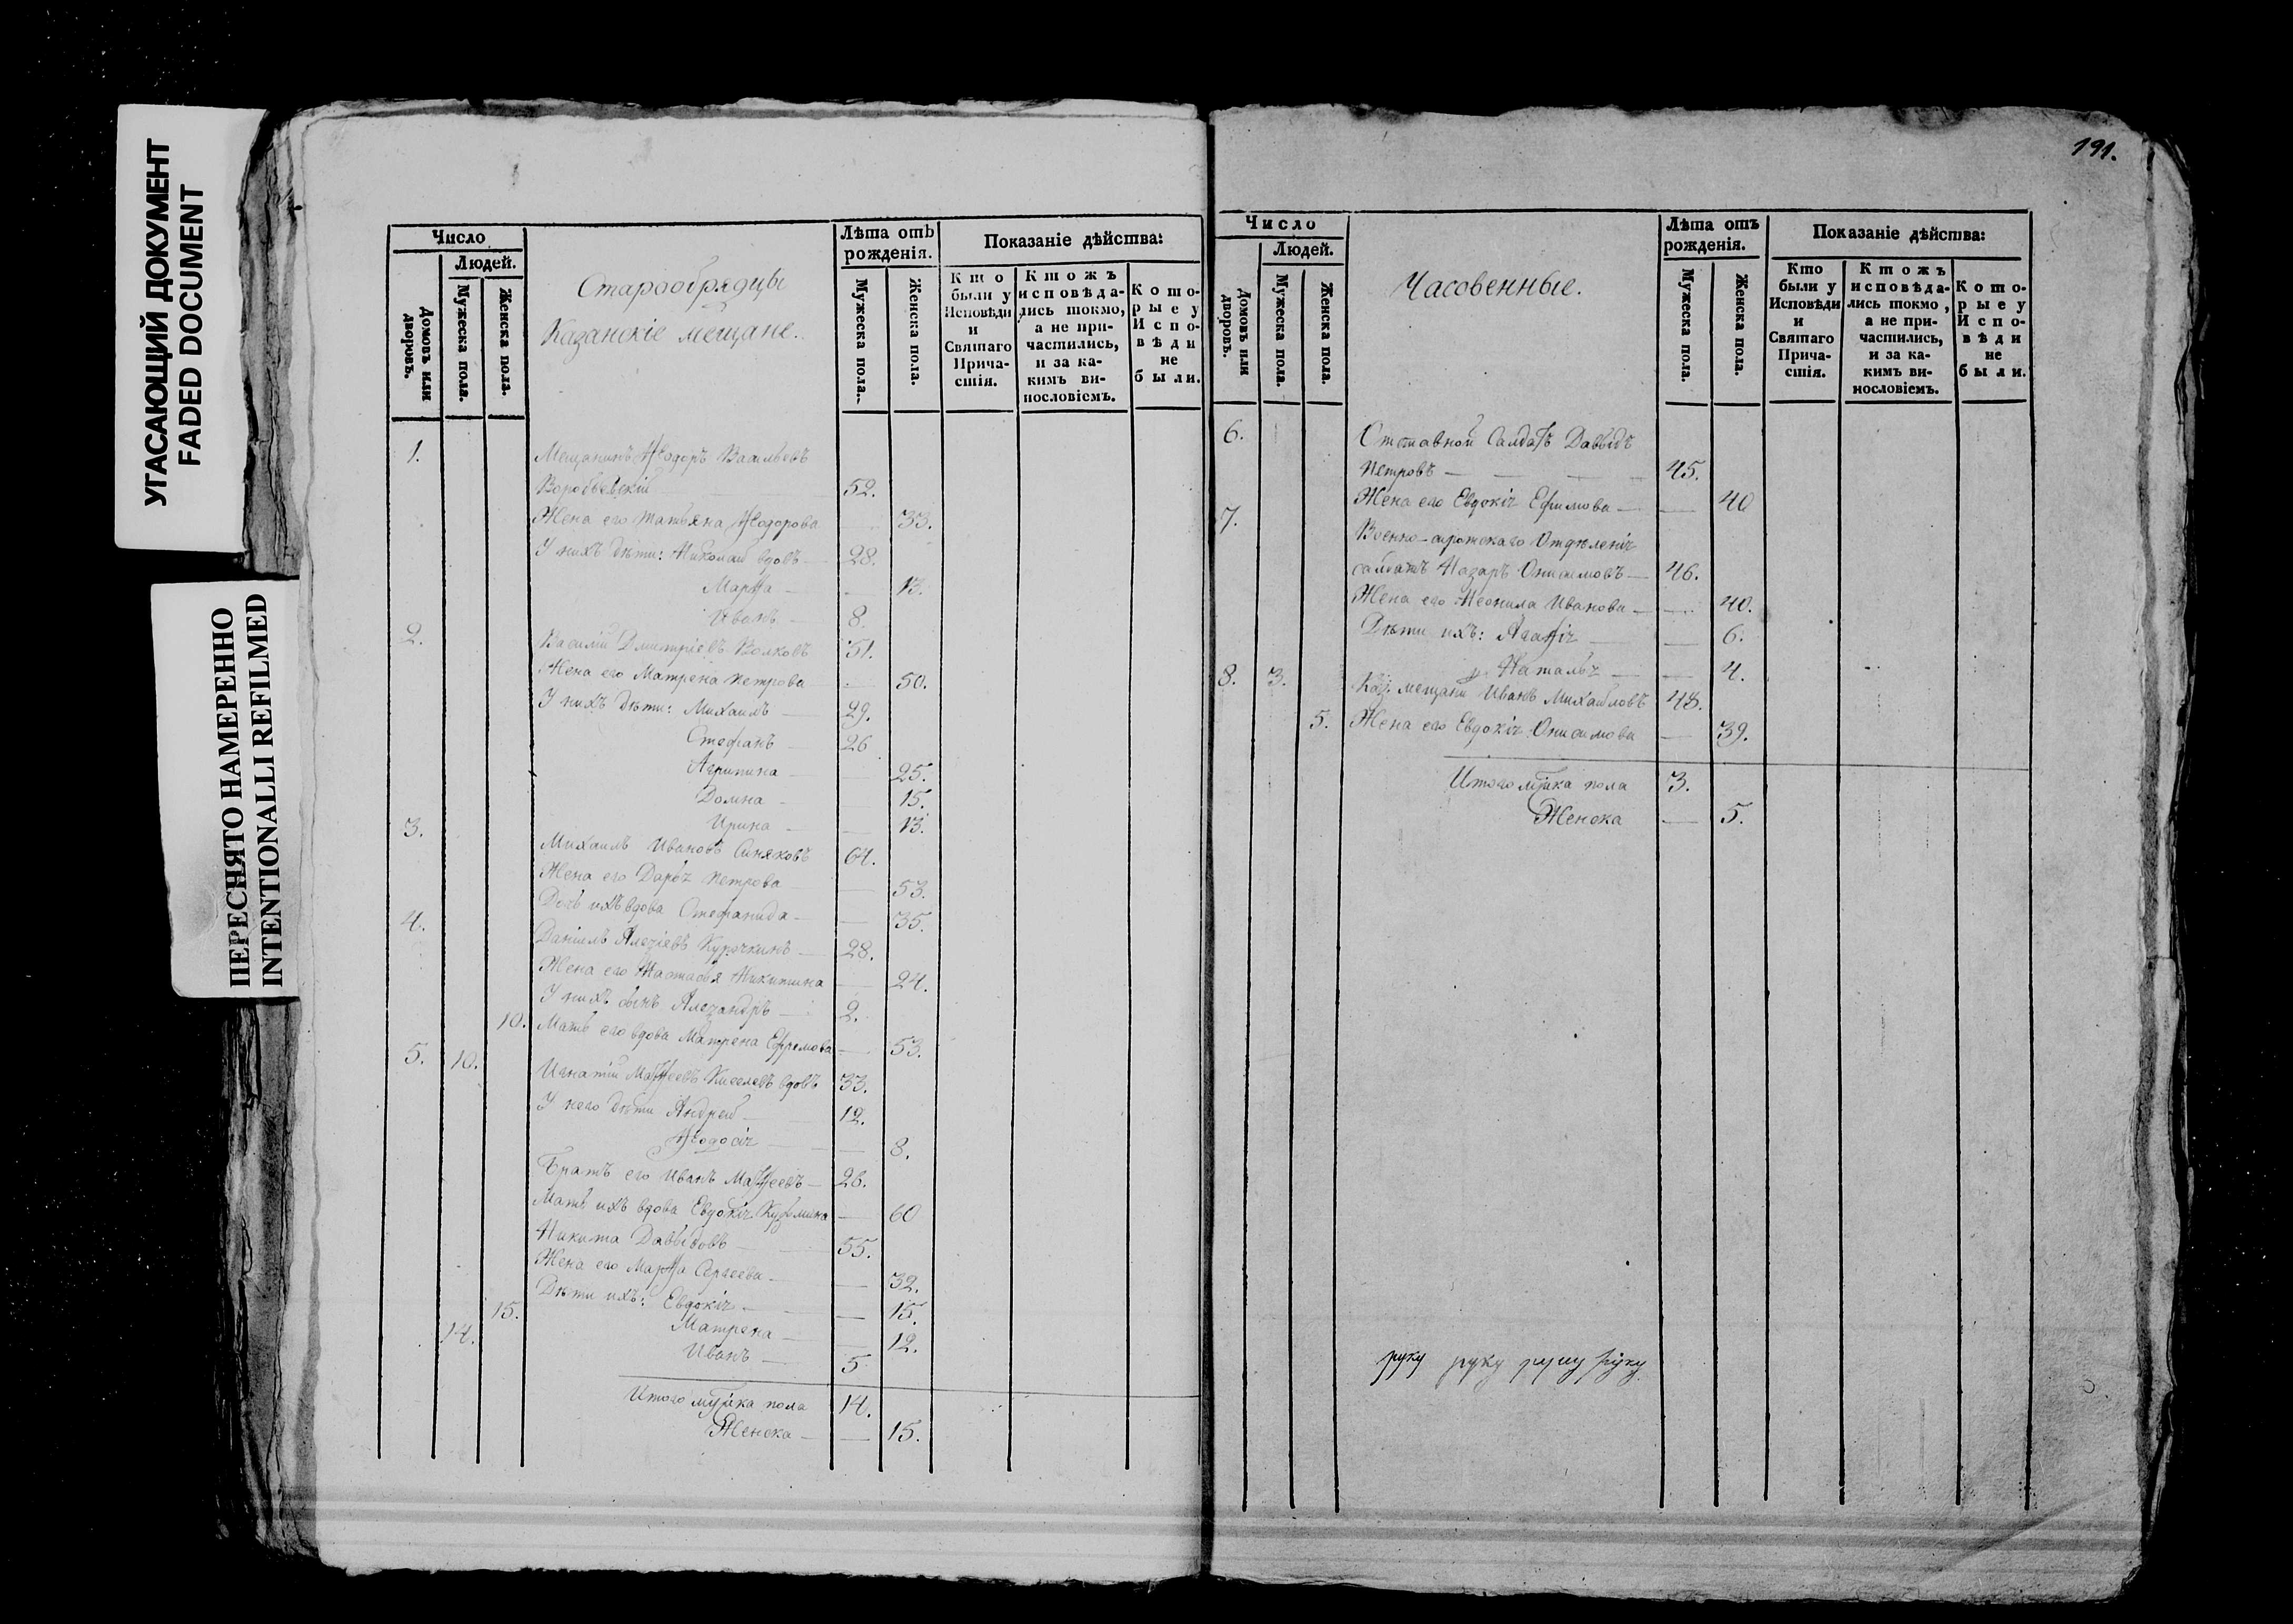 УГАСАЮЩИЙ ДОКУМЕНТ
FADED DOCUMENT
ПЕРЕСНЯТО НАМЕРЕННО
INTENTIONALLI REFILMED
Число
Людей.
Домовъ или дворовъ.
Мужеска пола.
Женска пола.
Старообрядцы
Казанскіе мещане.
Лѣта отъ рожденія.
Мужеска пола.
Женска пола.
Показаніе дѣйства:
Кто были у Исповѣди и Святаго Прича-стія.
Ктожъ исповѣда-лись токмо, а не при-частились, и за ка-кимъ ви-нословіемъ.
Кото-рые у Испо-вѣди не были.
1. Мещанинъ Ѳеодоръ Васильевъ
Воробьевскій 52.
Жена его Татьяна Ѳеодорова — 33.
У нихъ дѣти: Николай вдовъ — 28.
Марѳа — — 13.
Иванъ — 8.
2. Василій Дмитріевъ Волковъ 51.
Жена его Матрена Петрова — 50.
У нихъ дѣти: Михаилъ — 29.
Стефанъ — 26
Агрипина — 25.
Домна — 15.
Ирина — — 13.
3. Михаилъ Ивановъ Синяковъ 64.
Жена его Дарья Петрова — — 53.
Дочь ихъ вдова Стефанида — — 35.
4. Даніилъ Алеѯіевъ Курочкинъ — 28.
Жена его Настасья Никитина — 24.
У нихъ сынъ Алеѯандръ — 2.
10. Мать его вдова Матрена Ефремова — 53.
5. 10. Игнатій Маѳѳеевъ Киселевъ вдовъ 33.
У него дѣти Андрей — 12.
Ѳеодосія — — 8.
Братъ его Иванъ Маѳѳеевъ — 26.
Мать ихъ вдова Евдокія Кузьмина — 60
Никита Давыдовъ — 55.
Жена его Марѳа Сергеева — — 32.
15. Дѣти ихъ: Евдокія — — 15.
14. Матрена — — 12.
Иванъ — 5
Итого мужска пола 14.
Женска — — 15.
191.
Число
Людей.
Домовъ или дворовъ.
Мужеска пола.
Женска пола.
Часовенные.
Лѣта отъ рожденія.
Мужеска пола.
Женска пола.
Показаніе дѣйства:
Кто были у Исповѣди и Святаго Прича-стія.
Ктожъ исповѣда-лись токмо, а не при-частились, и за ка-кимъ ви-нословіемъ.
Кото-рые у Испо-вѣди не были.
6. Отставной Салдатъ Давыдъ
Петровъ — 45.
Жена его Евдокія Ефимова — — 40
7. Военно-сиротскаго Отдѣленія
салдатъ Назаръ Онисимовъ — 46.
Жена его Неонила Иванова — — 40.
Дѣти ихъ: Агаѳія — — 6.
Наталья — — 4.
8. 3. Каз. мещани Иванъ Михайловъ 48.
5. Жена его Евдокія Онисимова — 39.
Итого мужска пола 3.
Женска — 5.
руку руку руку руку